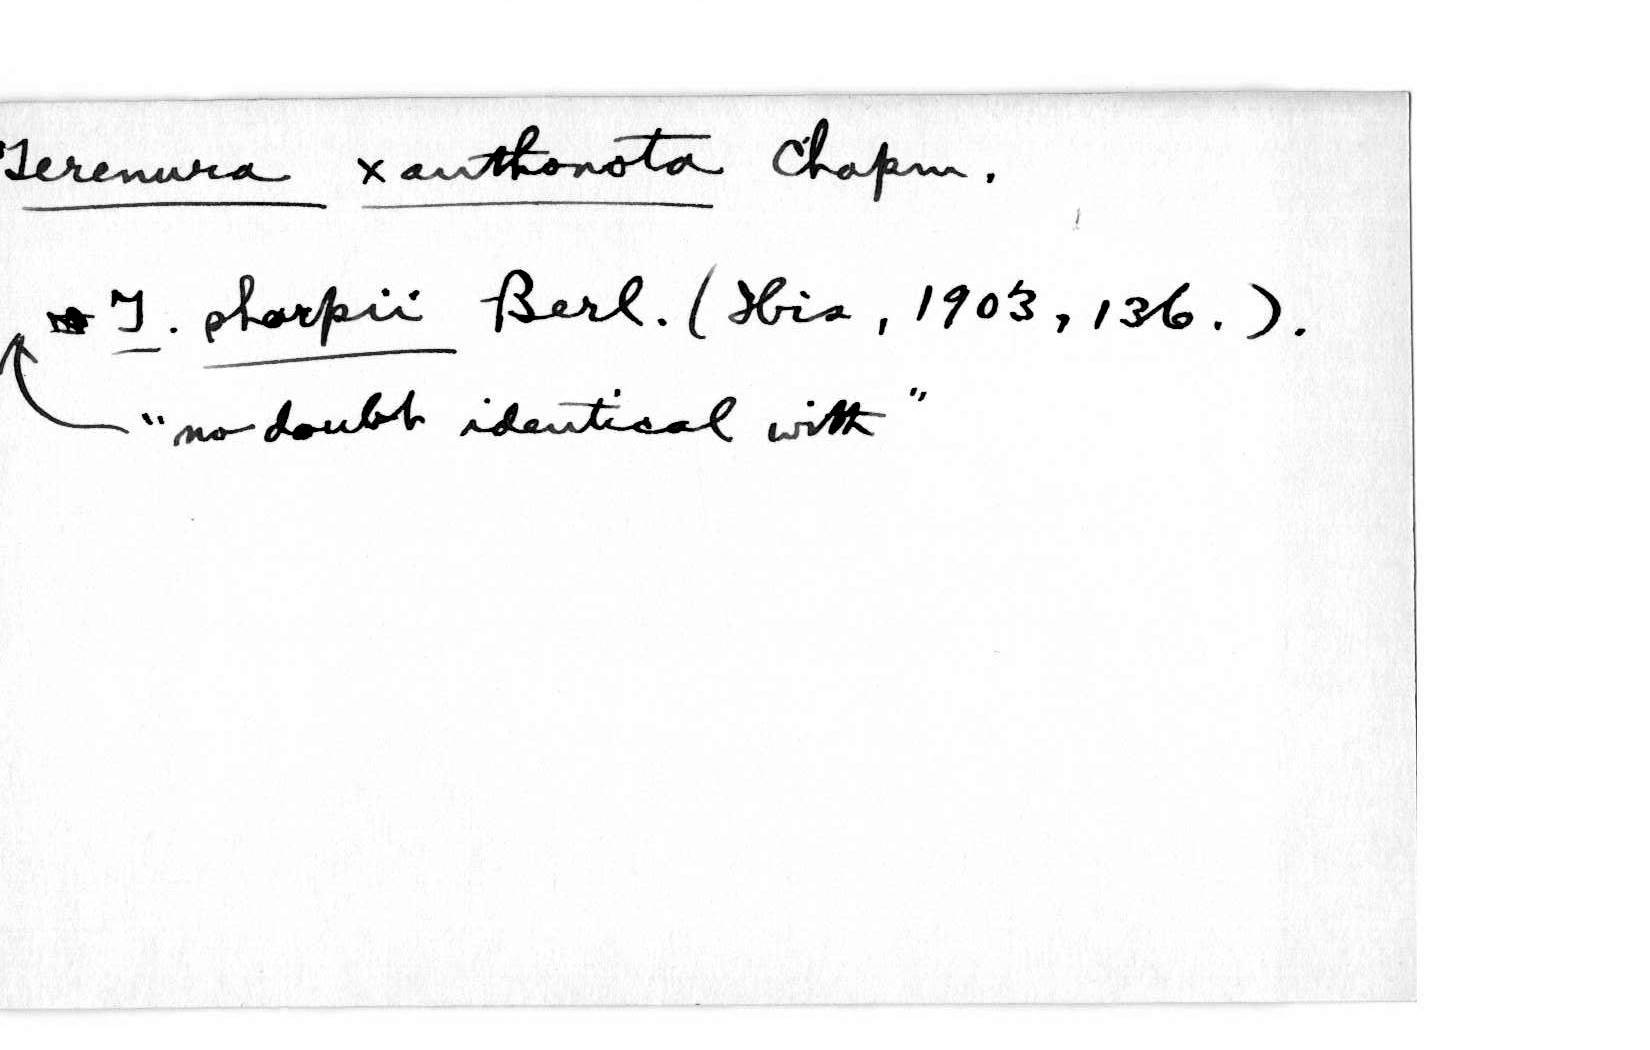 Terenura xanthonota Chapm.
T. sharpii Berl. (Ibis, 1903, 136.).
"no doubt identical with"